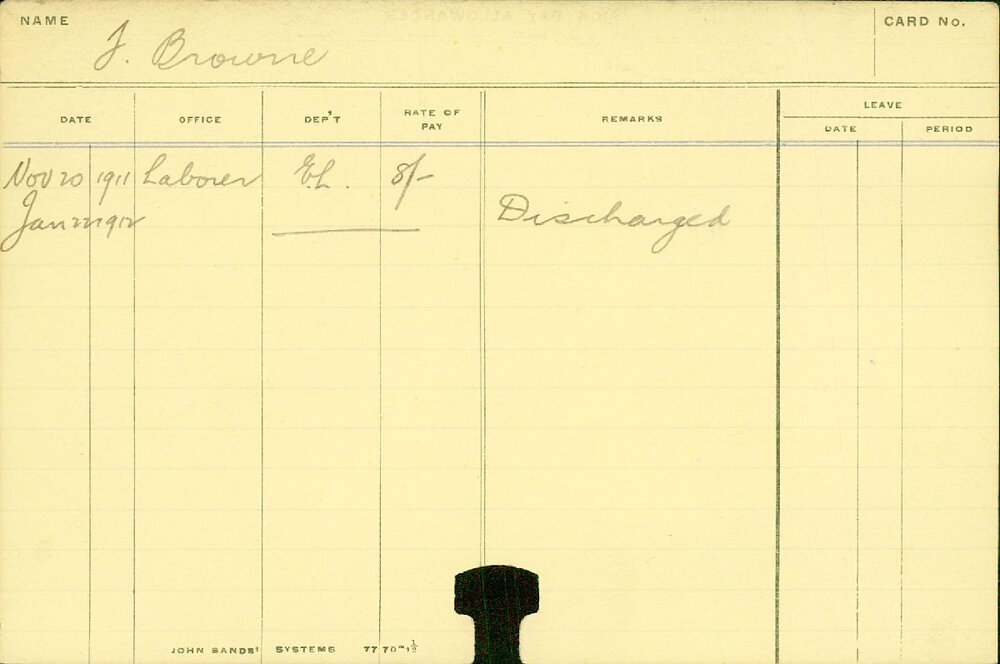 NAME J. Browne CARD No.
DATE OFFICE DEP'T RATE OF PAY REMARKS LEAVE
DATE PERIOD
Nov 20 1911 Laborer E.L. 8/-
Jan 22 1912 Discharged
JOHN SANDS' SYSTEMS